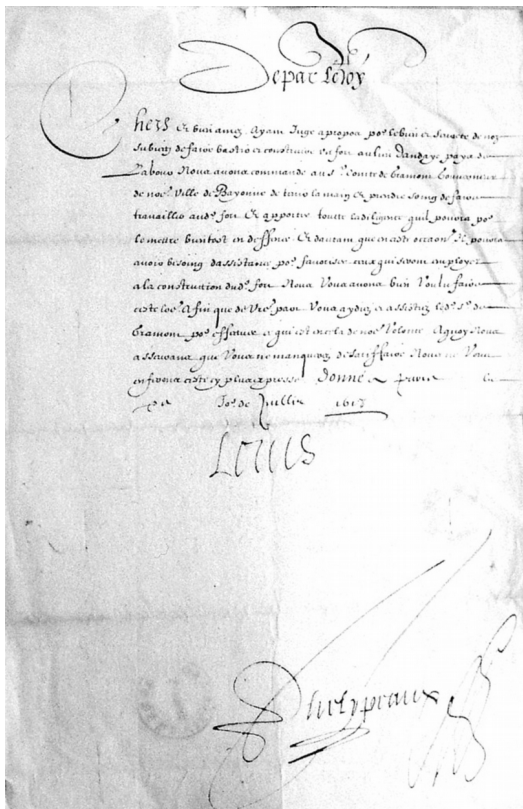 De par Le Roy
Chers et bien amez Ayant Juge a propos po.r le bien et seurete de noz
subiectz de faire bastir et construire un fort au lieu Dandaye pays de
Labour Nous avons commande au s.r Comte de Gramont Gouverneur
de no.e Ville de Bayonne de tenir la main et prendre soing de faire
travailler aud. fort Et apporter toutte la diligence quil pourra po.r
le mettre bientost en deffence Et dautant que en ceste occaon Il pourra
avoir besoing dassistance po.r favoriser ceux qui seront employez
a la construction dud. fort Nous Vous avons bien Voulu faire
ceste l.re Afin que de V.re part Vous aydiez et assistiez led. s.r de
Gramont po.r effectuer ce qui est en cela de no.e Volonte A quoy Nous
asseurans que Vous ne manquerez de satisffaire Nous ne Vous
en ferons ceste cy plus expresse Donné a Paris le
Jo.r de Juillet 1617
Louis
Phelypeaux